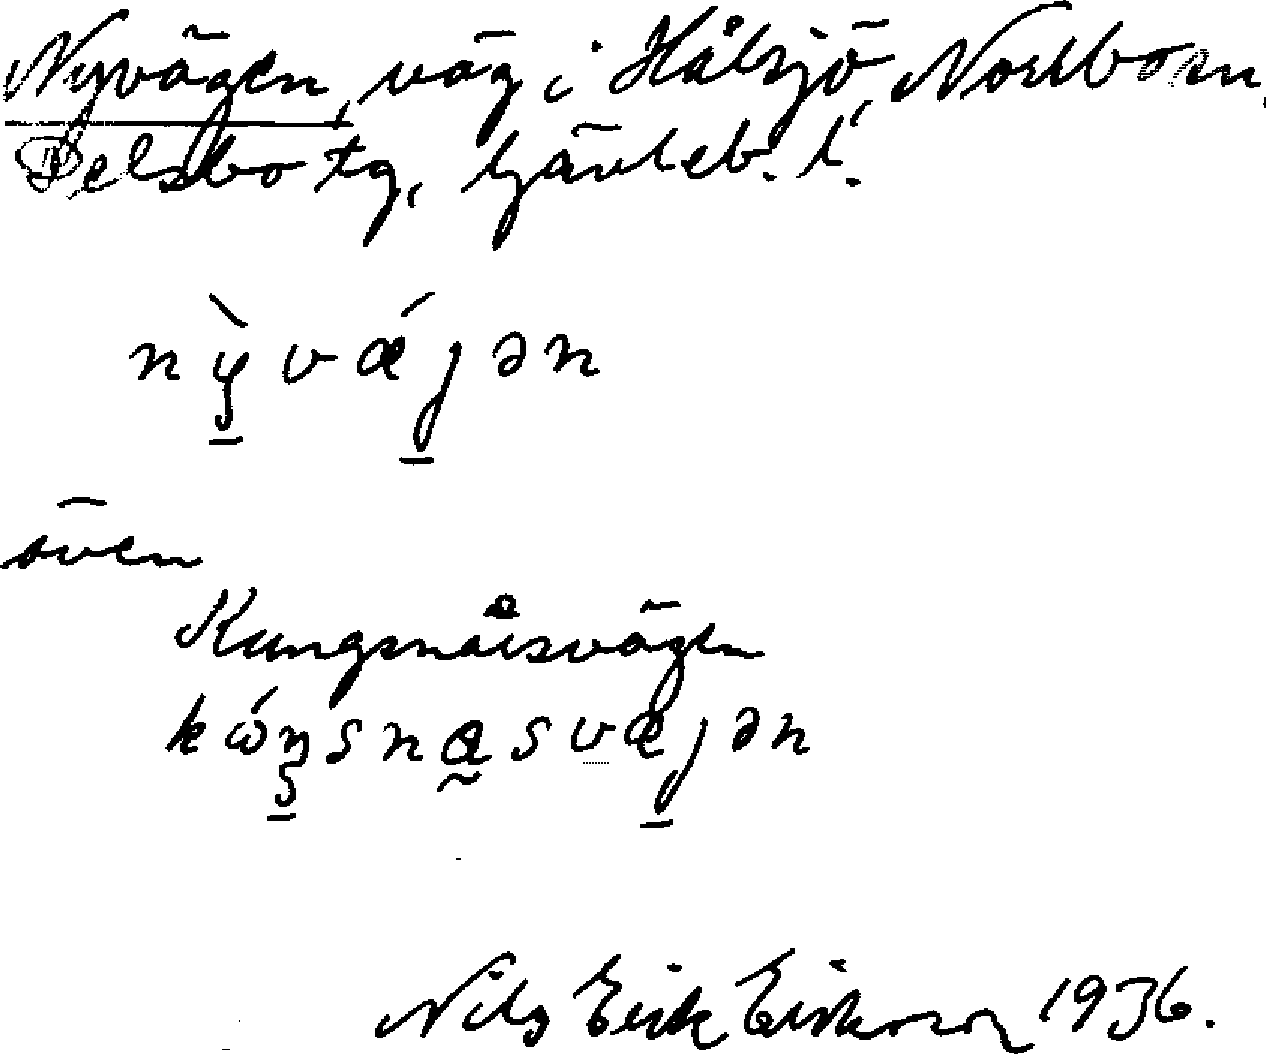 Nyvägen, väg i Hålsjö, Norrbo sn,
Delsbo tg, Gävleb. l.
nỳvǽjən
även
Kungsnäsvägen
kώŋsnæsvæjən
Nils Erik Eriksson 1936.